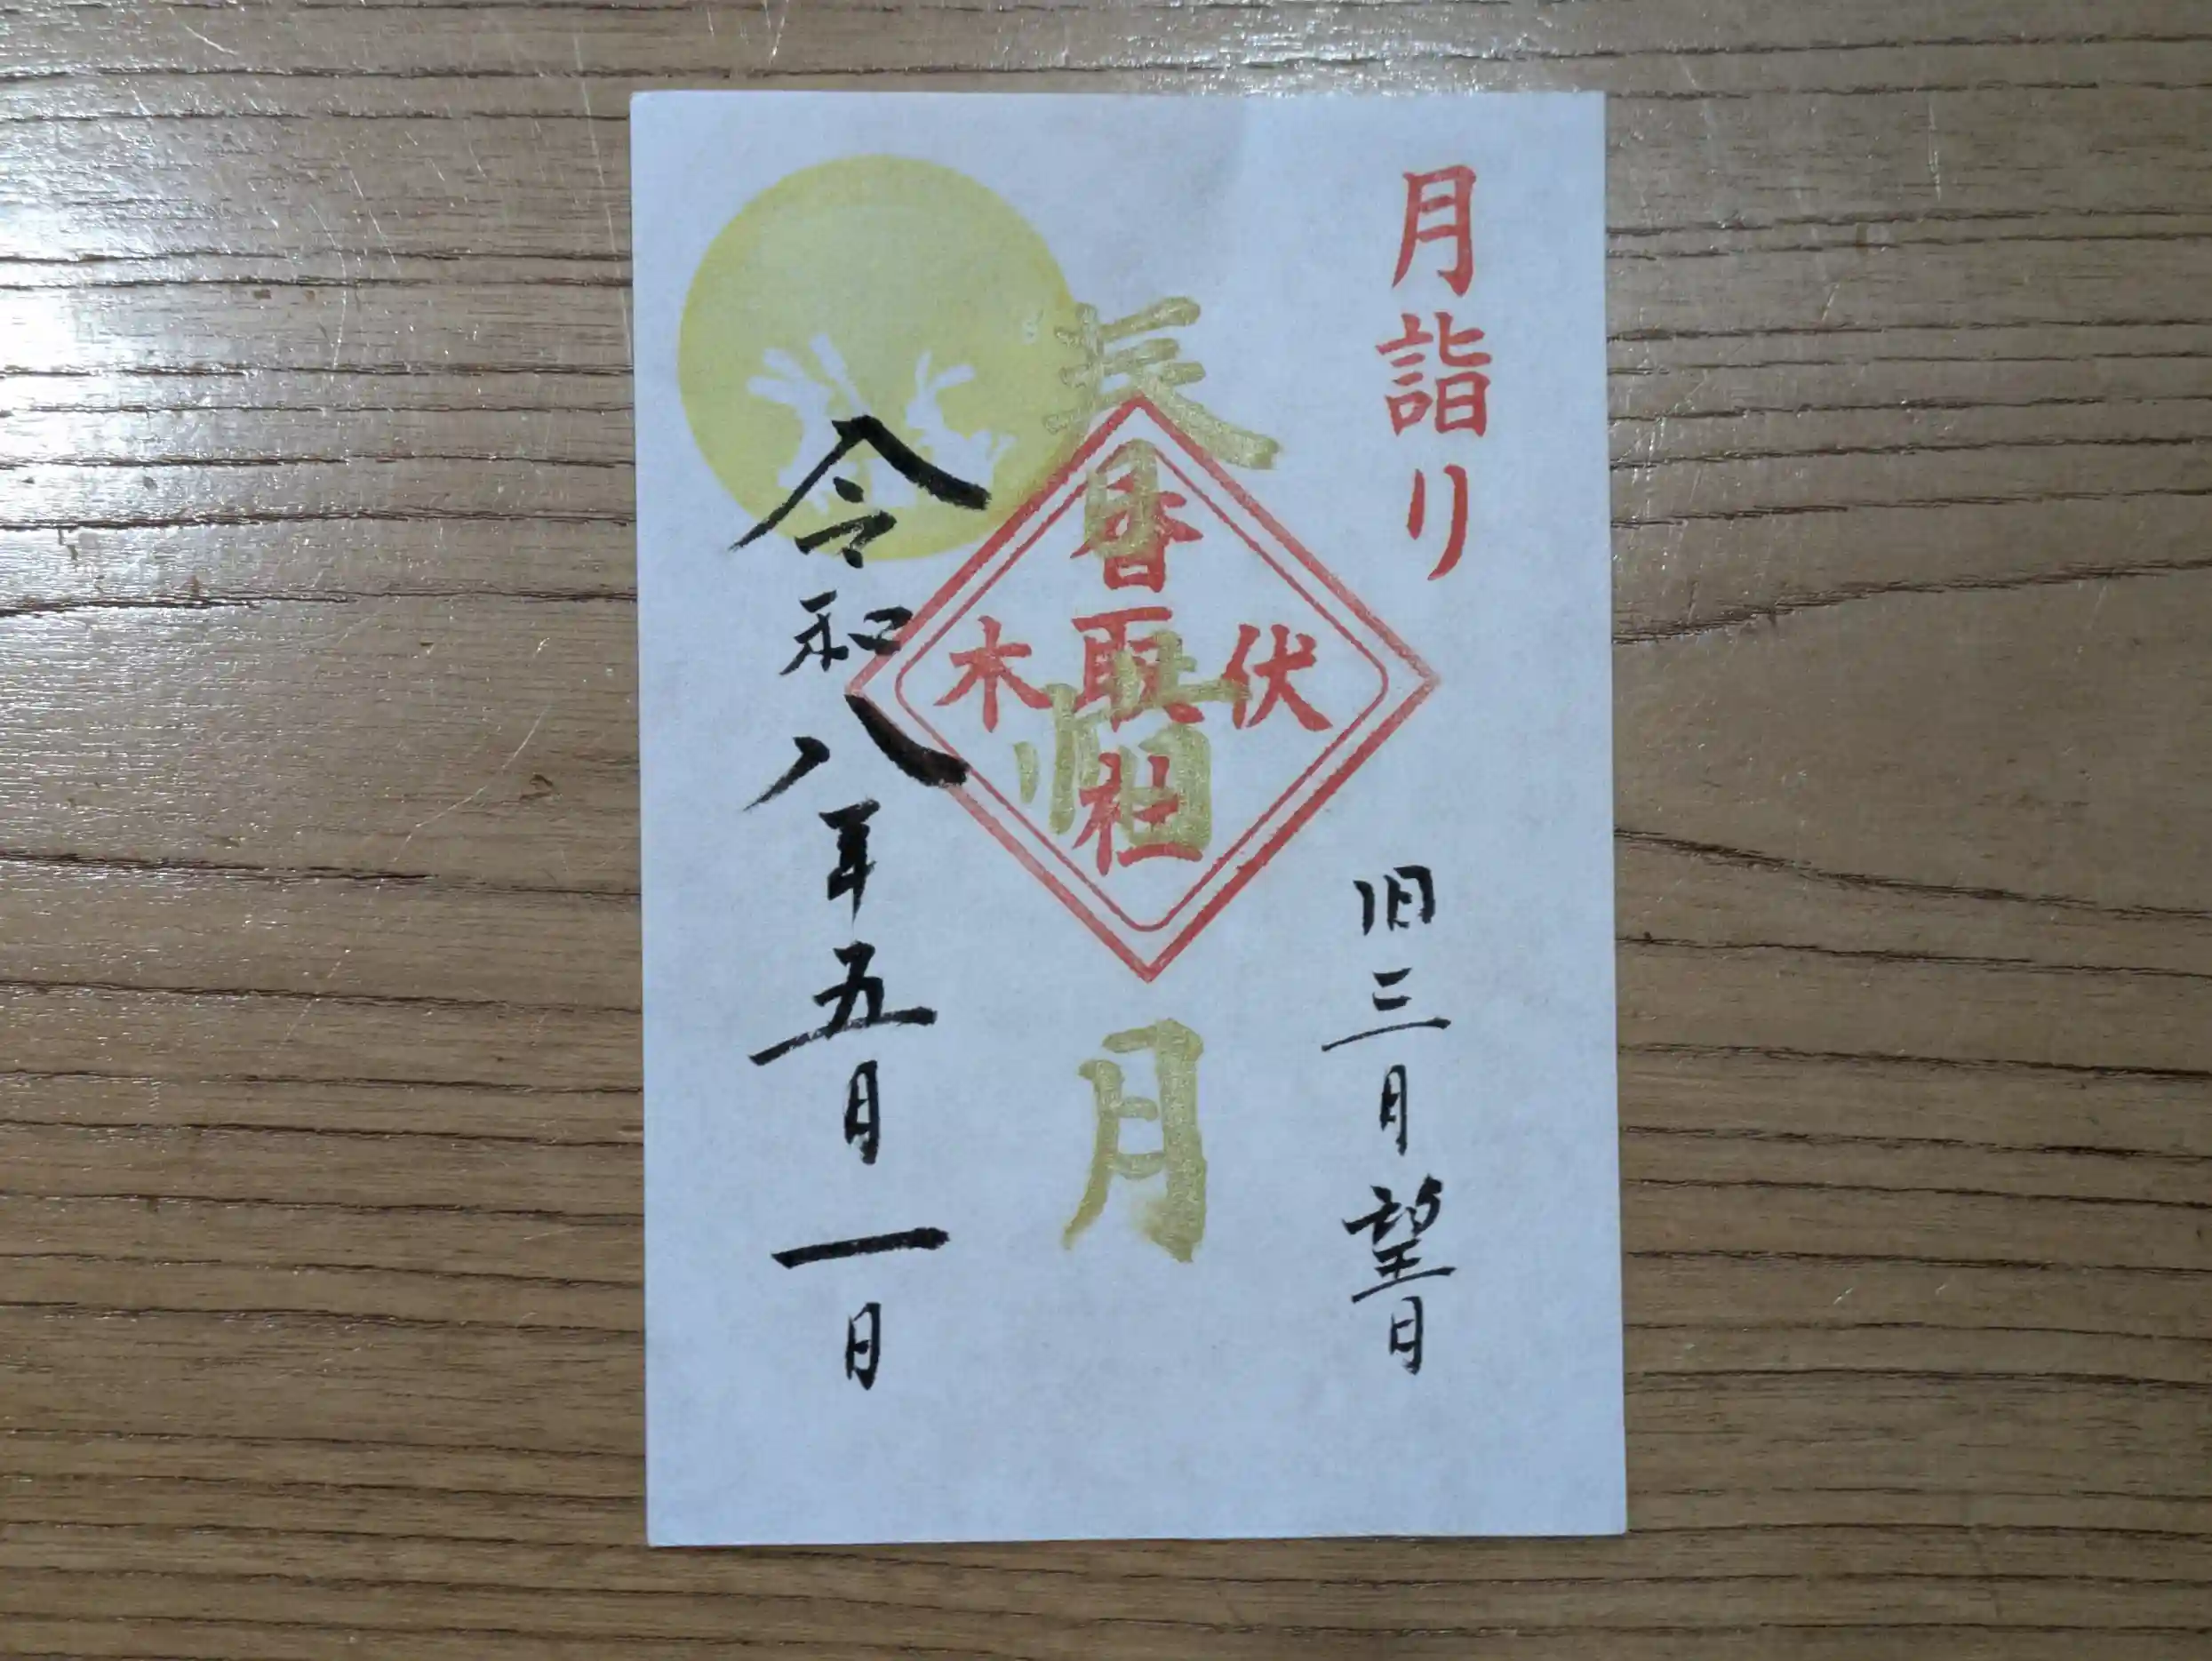 月詣り
旧三月望日
春惜月
伏木
香取社
令和八年五月一日